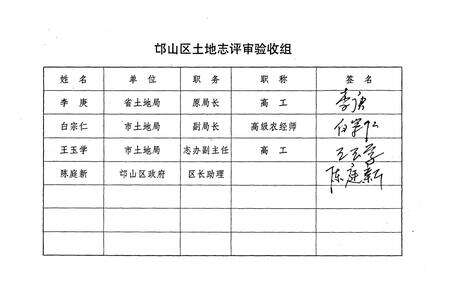 邙山区土地志评审验收组
姓名 单位 职务 职称 签名
李庚 省土地局 原局长 高工 李庚
白宗仁 市土地局 副局长 高级农经师 白宗仁
王玉学 市土地局 志办副主任 高工 王玉学
陈庭新 邙山区政府 区长助理 陈庭新